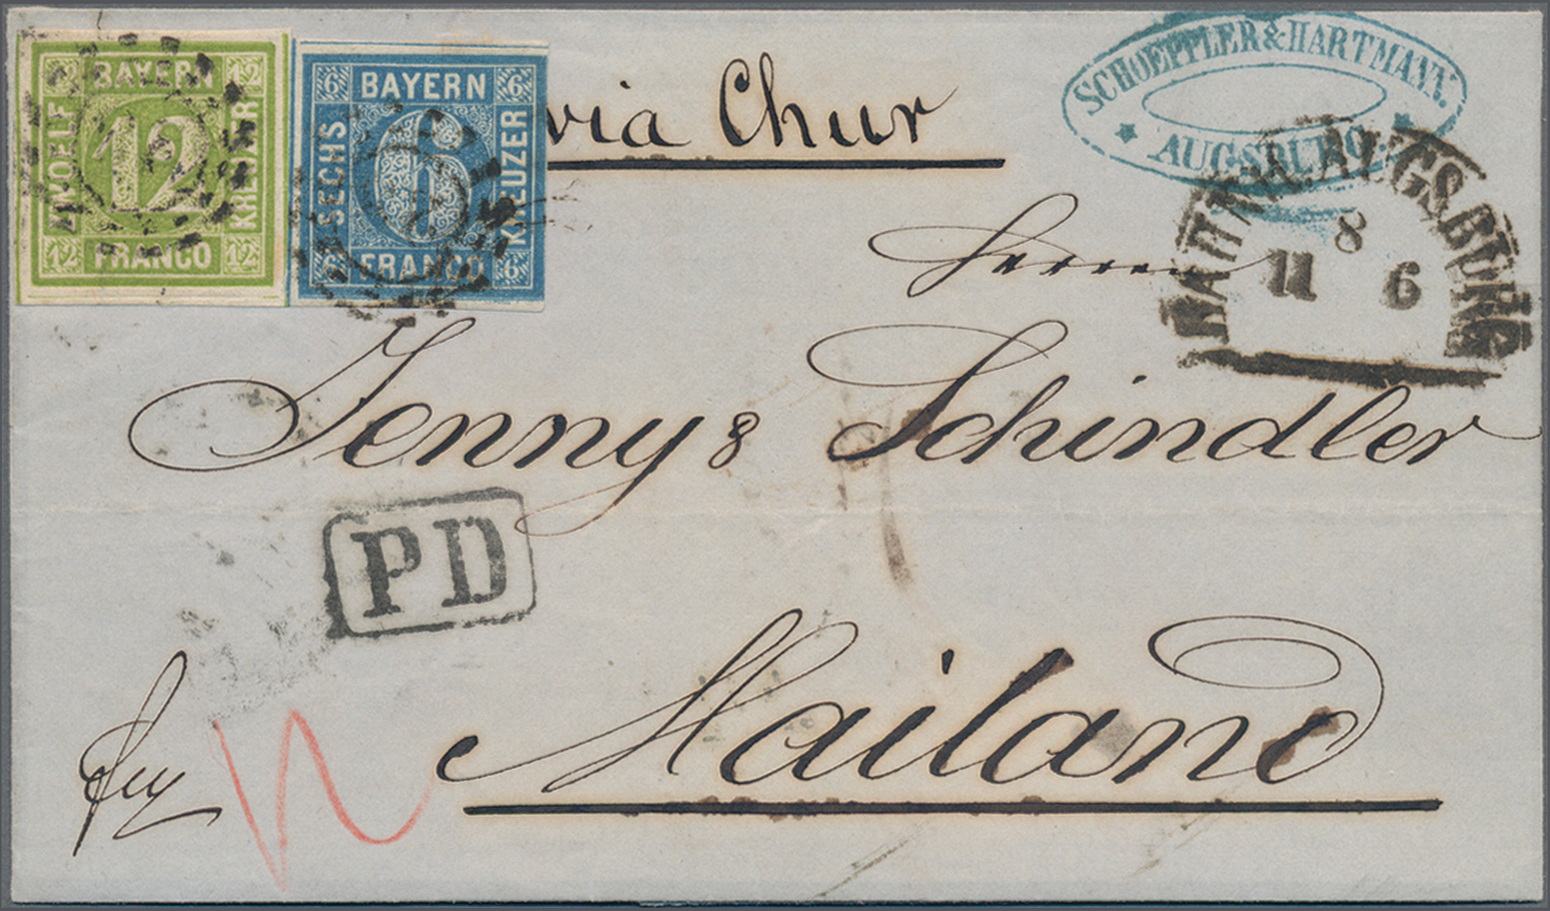 12 BAYERN 12
ZWOELF 12 KREUZER
12 FRANCO 12
6 BAYERN 6
SECHS 6 KREUZER
6 FRANCO 6
via Chur
SCHOEPPLER & HARTMANN.
AUGSBURG
AUGSBURG
8
11 6
Herren
Jenny & Schindler
PD
Mailand